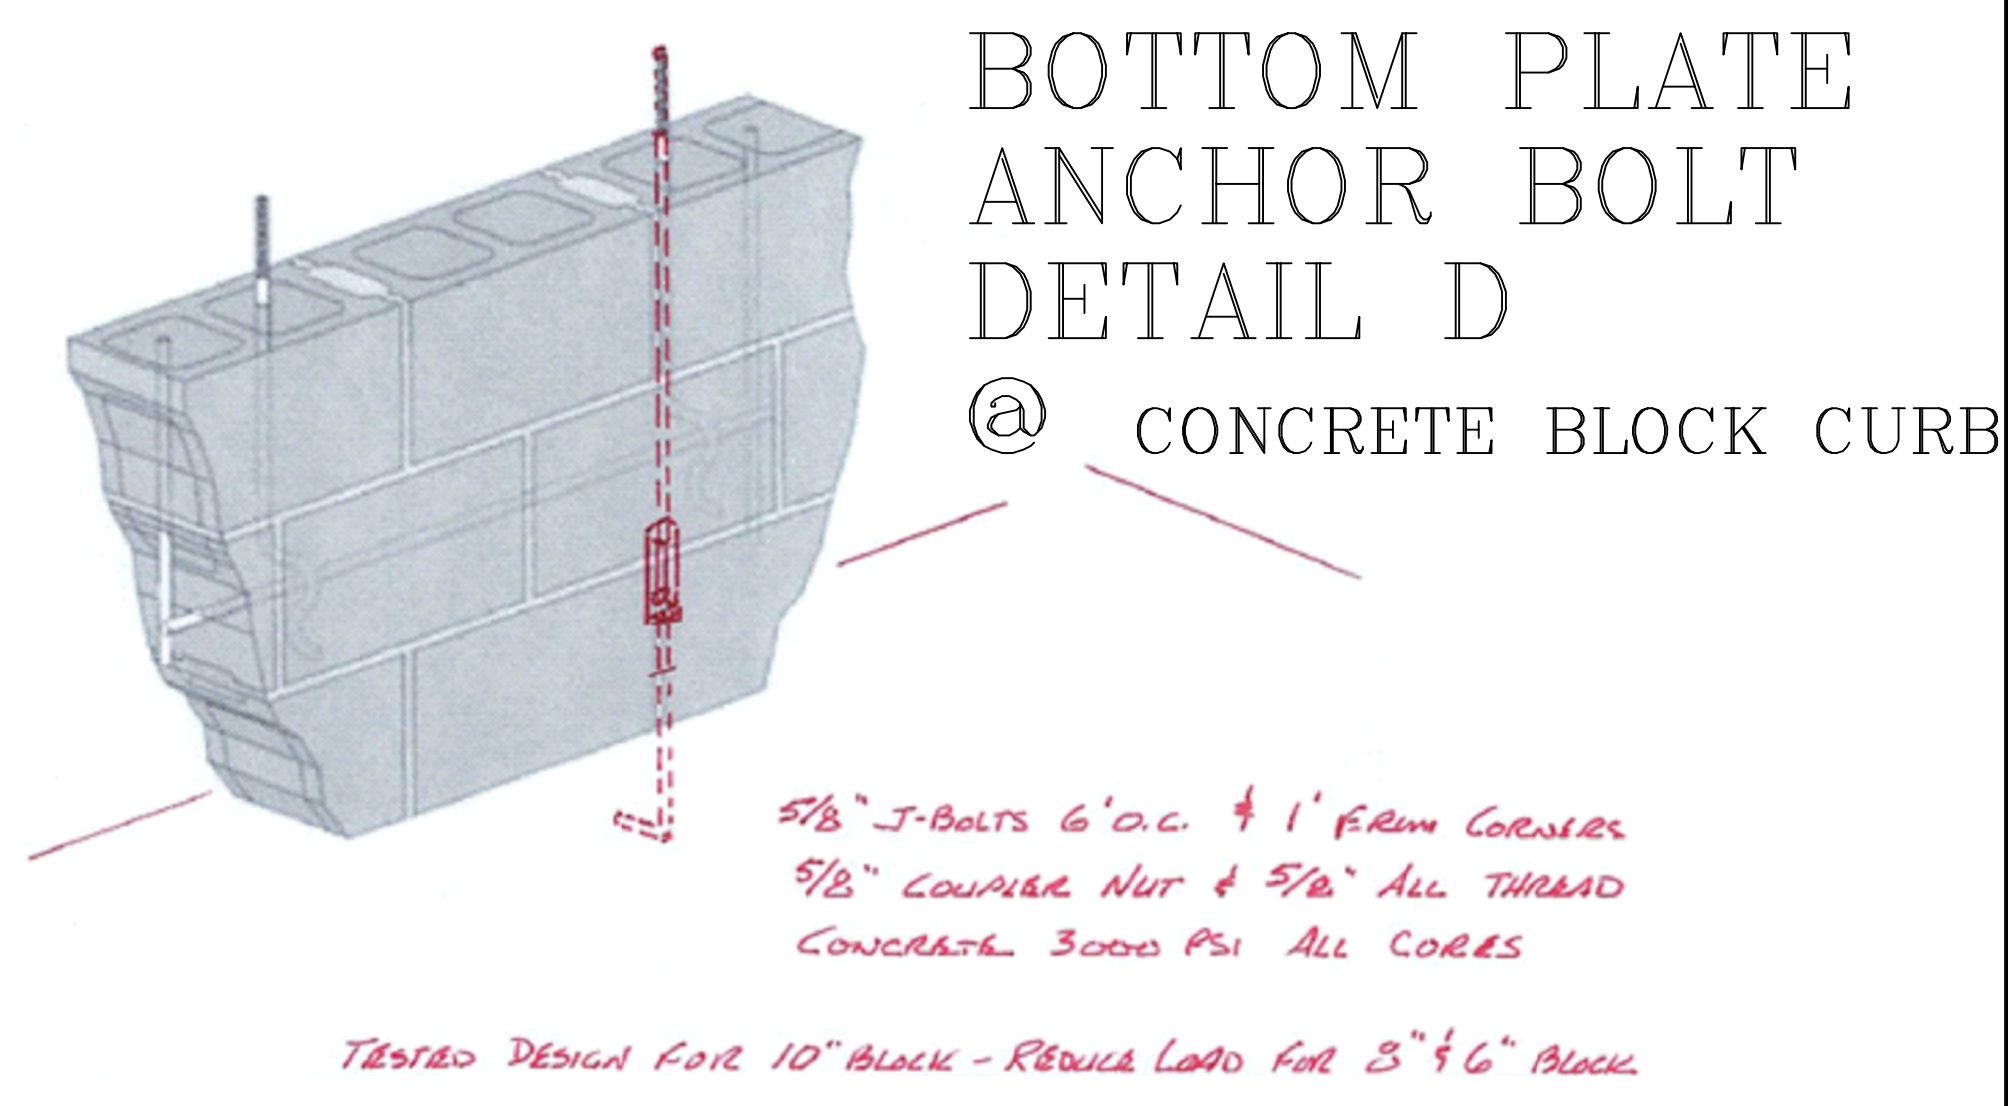 BOTTOM PLATE
ANCHOR BOLT
DETAIL D
@ CONCRETE BLOCK CURB
5/8" J-BOLTS 6' O.C. & 1' FROM CORNERS
5/8" COUPLER NUT & 5/8" ALL THREAD
CONCRETE 3000 PSI ALL CORES
TESTED DESIGN FOR 10" BLOCK - REDUCE LOAD FOR 8" & 6" BLOCK